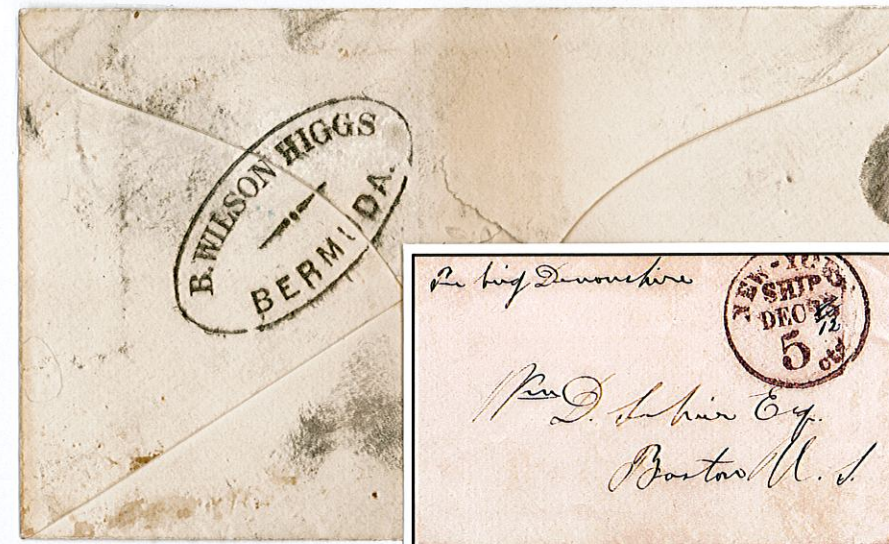 B. WILSON HIGGS
BERMUDA.
Per brig Devonshire
NEW-YORK
SHIP
DEC
12
5 cts
Wm D. Esq.
Boston U. S.